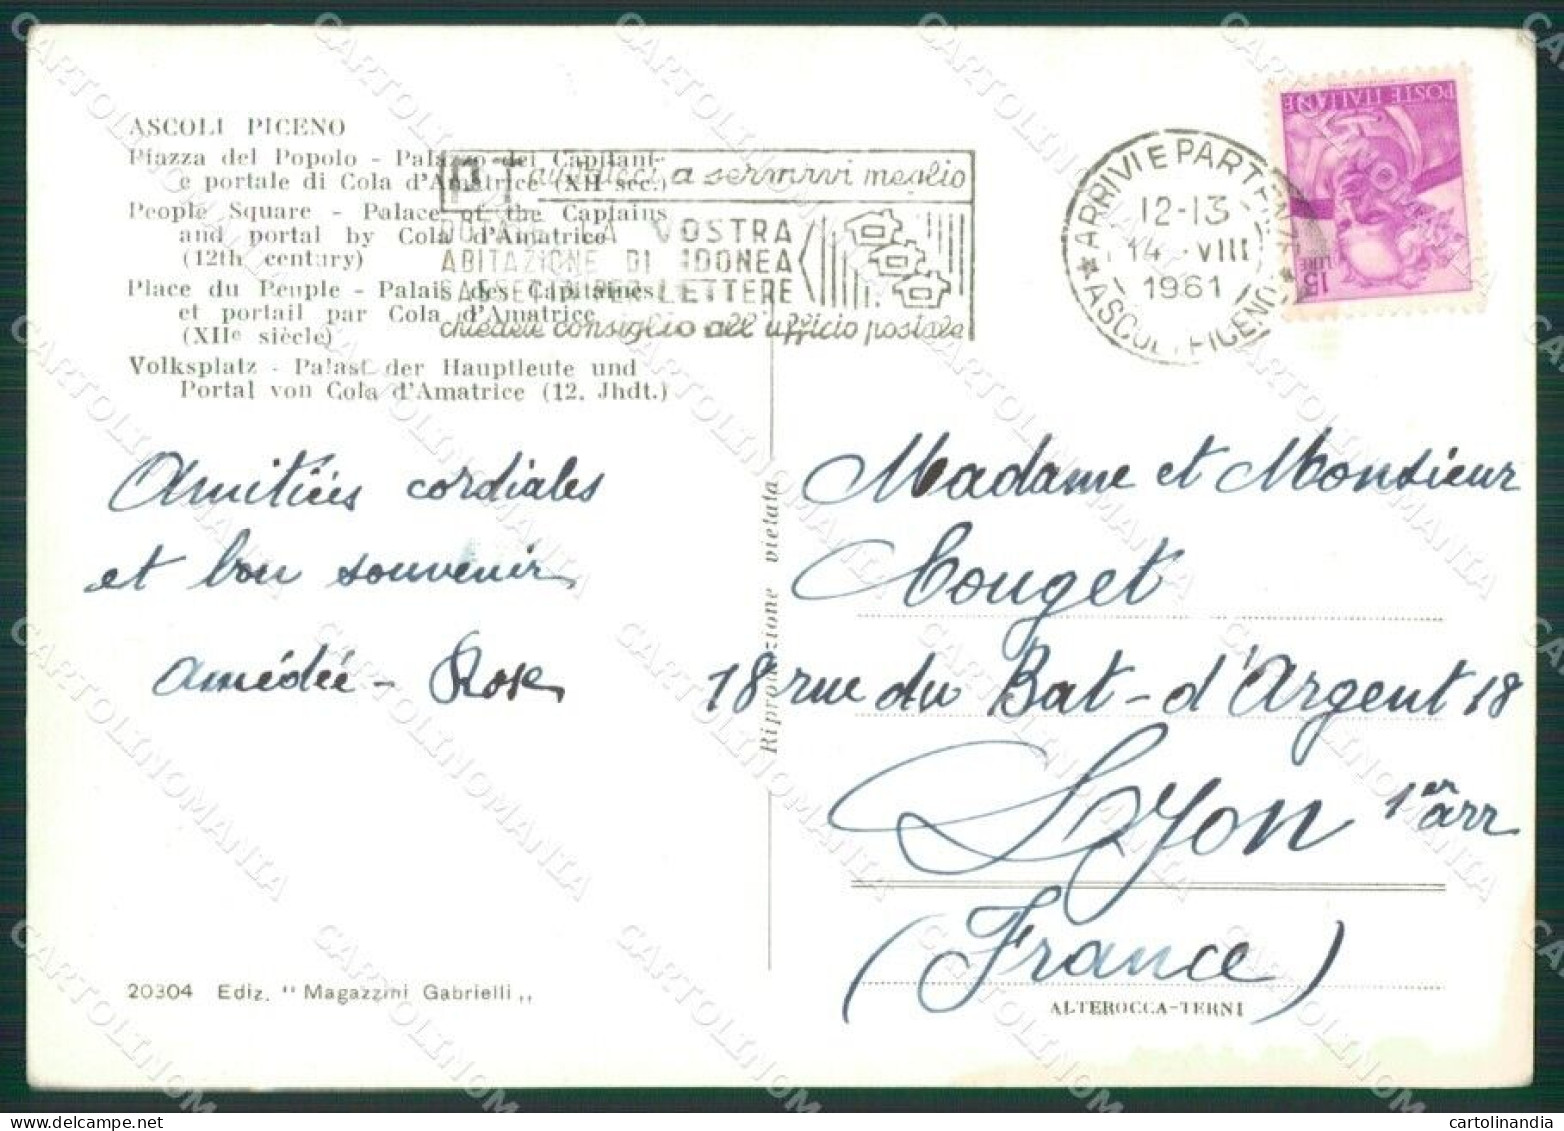 ASCOLI PICENO
Piazza del Popolo - Palazzo dei Capitani
e portale di Cola d'Amatrice (XII sec.)
People Square - Palace of the Captains
and portal by Cola d'Amatrice
(12th century)
Place du Peuple - Palais des Capitaines
et portail par Cola d'Amatrice
(XIIe siècle)
Volksplatz - Palast der Hauptleute und
Portal von Cola d'Amatrice (12. Jhdt.)
aiutateci a servirvi meglio
VOSTRA
ABITAZIONE DI IDONEA
LETTERE
chiedete consiglio all'ufficio postale
ARRIVI E PARTENZE
12-13
14 · VIII
1961
ASCOLI PICENO
POSTE ITALIANE
LIRE 15
Amitiées cordiales
et bon souvenir
Amédée - Rose
Madame et Monsieur
Couget
18 rue du Bat-d'Argent 18
Lyon 1er arr
(France)
Riproduzione vietata
20304 Ediz. "Magazzini Gabrielli„
ALTEROCCA-TERNI
CARTOLINOMANIA
cartolinandia